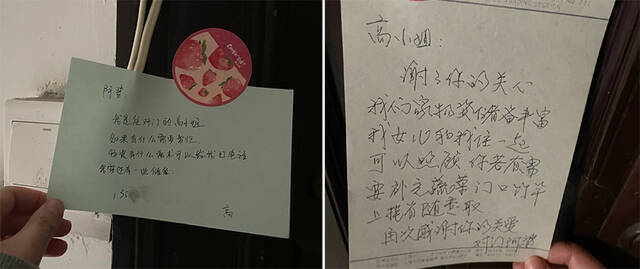 阿婆:
我是住对门的高小姐
如果有什么需要帮忙
或者有什么需求可以给我打电话
高
高小姐:
谢谢你的关心
我们家物资储备丰富
我女儿和我住一起
可以照顾 你若有需
要补充蔬菜门口竹竿
上挂有随意取
再次感谢你的关爱
对门阿婆